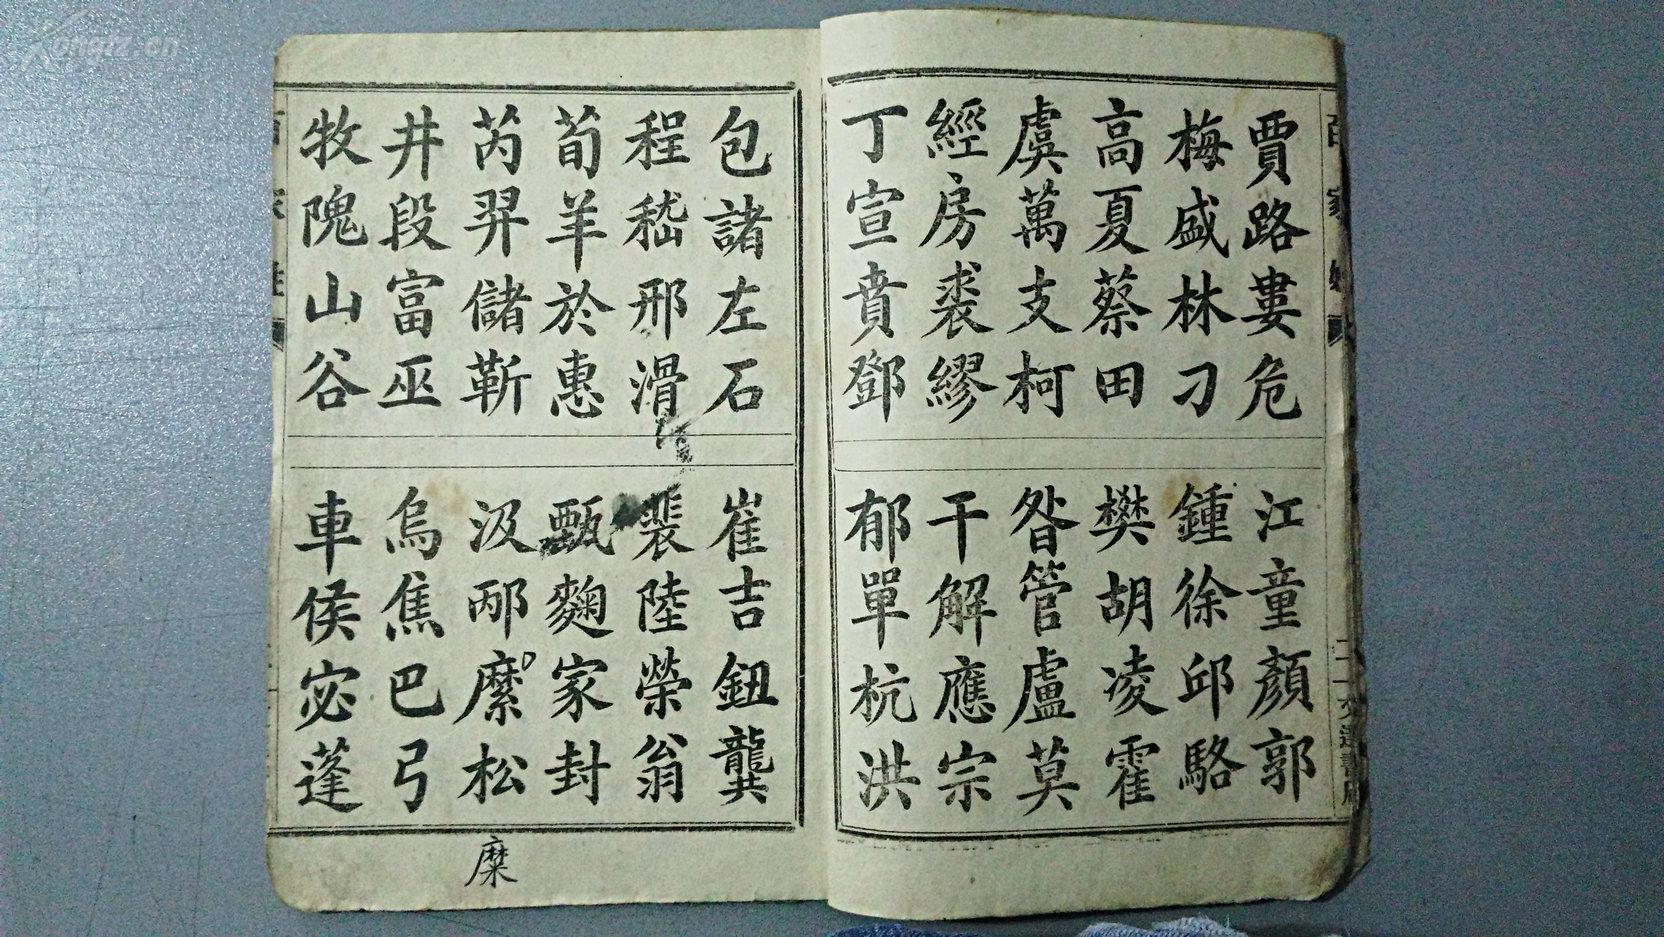 賈路婁危
江童顏郭
梅盛林刁
鍾徐邱駱
高夏蔡田
樊胡凌霍
虞萬支柯
昝管盧莫
經房裘繆
干解應宗
丁宣賁鄧
郁單杭洪
包諸左石
崔吉鈕龔
程嵇邢滑
裴陸榮翁
荀羊於惠
甄麴家封
芮羿儲靳
汲邴縻松
糜
井段富巫
烏焦巴弓
牧隗山谷
車侯宓蓬
百家姓